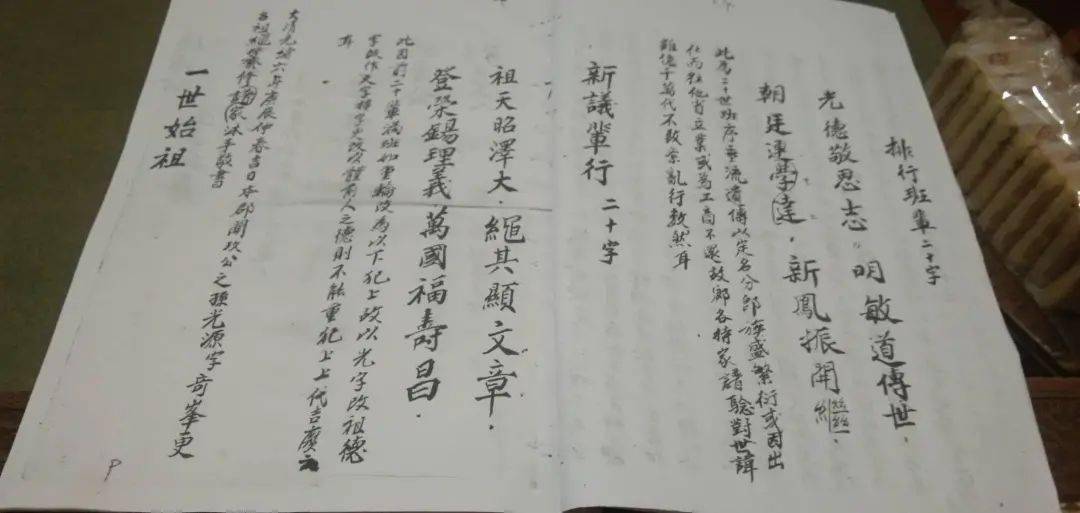 排行班輩二十字
光德敬思志。明敏道傳世。
朝廷連學達，新鳳振開繼。
此為二十世班序垂流遺傳以定名分部族盛繁衍或因出
仕而在他省立業或為工商不還故鄉各持家譜驗對世諱
雖億千萬代不致紊亂行數然耳
新議輩行 二十字
祖天昭澤大．繩其顯文章．
登榮錫理義，萬國福壽昌．
此因前二十輩滿班如重輪改為以下犯上故以光字改祖德
字改作天字才改改體前人之德則不能重犯上上代吉
大清光緒六年庚辰仲春吉日本郡開攻公之孫光源字奇峯更
名祖 沐手敬書
一世始祖
P